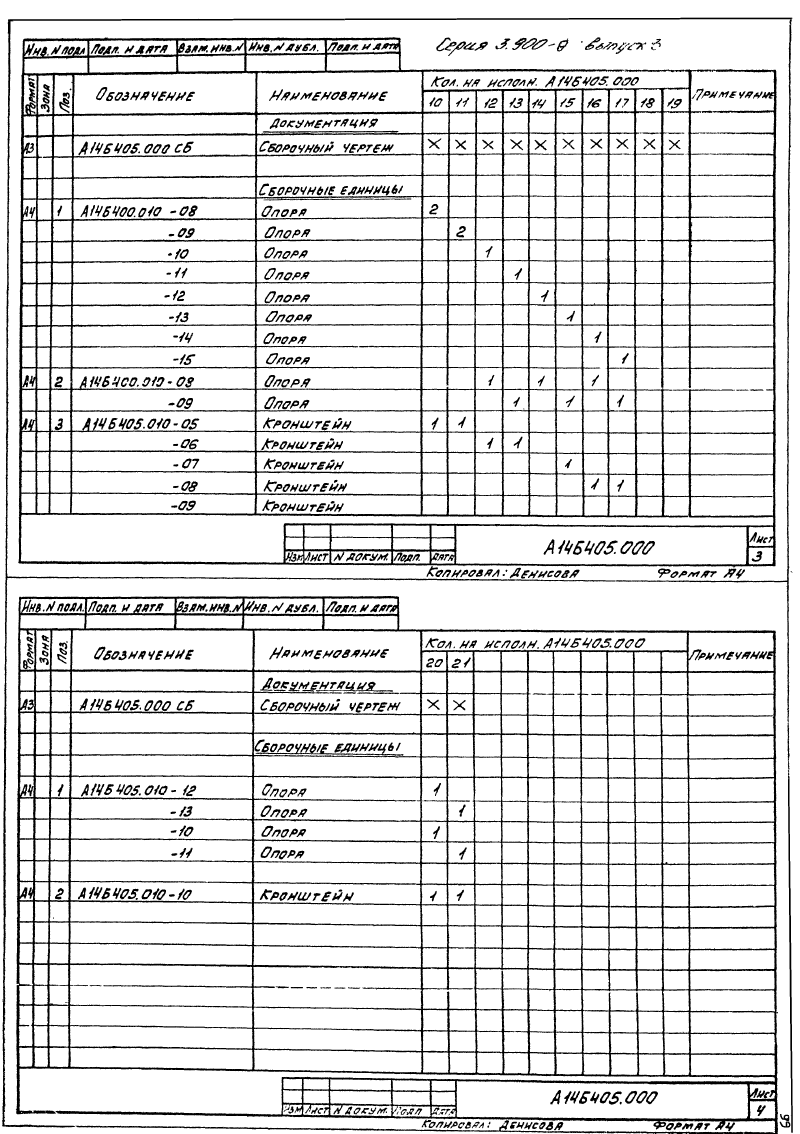 Серия 3.900-9 выпуск 3
Инв. N подл Подп. и дата Взам. инв. N Инв. N дубл. Подп. и дата
Формат Зона Поз. Обозначение Наименование Кол. на исполн. А14Б405.000 Примечание
10 11 12 13 14 15 16 17 18 19
Документация
А3 А14Б405.000 СБ Сборочный чертеж X X X X X X X X X X
Сборочные единицы
А4 1 А14Б400.010 -08 Опора 2
-09 Опора 2
-10 Опора 1
-11 Опора 1
-12 Опора 1
-13 Опора 1
-14 Опора 1
-15 Опора 1
А4 2 А14Б400.010-08 Опора 1 1 1
-09 Опора 1 1 1
А4 3 А14Б405.010-05 Кронштейн 1 1
-06 Кронштейн 1 1
-07 Кронштейн 1
-08 Кронштейн 1 1
-09 Кронштейн
Изм Лист N докум. Подп. Дата А14Б405.000 Лист 3
Копировал: Денисова Формат А4
Инв. N подл. Подп. и дата Взам. инв. N Инв. N дубл. Подп. и дата
Формат Зона Поз. Обозначение Наименование Кол. на исполн. А14Б405.000 Примечание
20 21
Документация
А3 А14Б405.000 СБ Сборочный чертеж X X
Сборочные единицы
А4 1 А14Б405.010-12 Опора 1
-13 Опора 1
-10 Опора 1
-11 Опора 1
А4 2 А14Б405.010-10 Кронштейн 1 1
Изм Лист N докум. Подп Дата А14Б405.000 Лист 4
Копировал: Денисова Формат А4
66